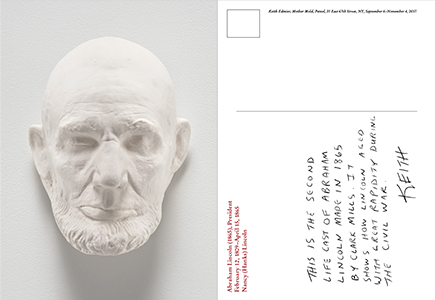 Keith Edmier, Mother Mold, Petzel, 35 East 67th Street, NY, September 6–November 4, 2017
Abraham Lincoln (1865), President
February 12, 1829–April 15, 1865
Nancy (Hanks) Lincoln
THIS IS THE SECOND
LIFE CAST OF ABRAHAM
LINCOLN MADE IN 1865
BY CLARK MILLS. IT
SHOWS HOW LINCOLN AGED
WITH GREAT RAPIDITY DURING
THE CIVIL WAR.
KEITH